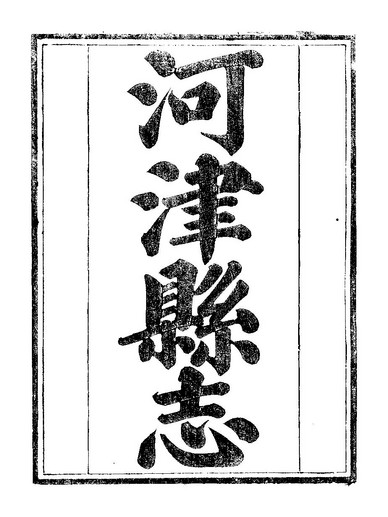 河津縣志